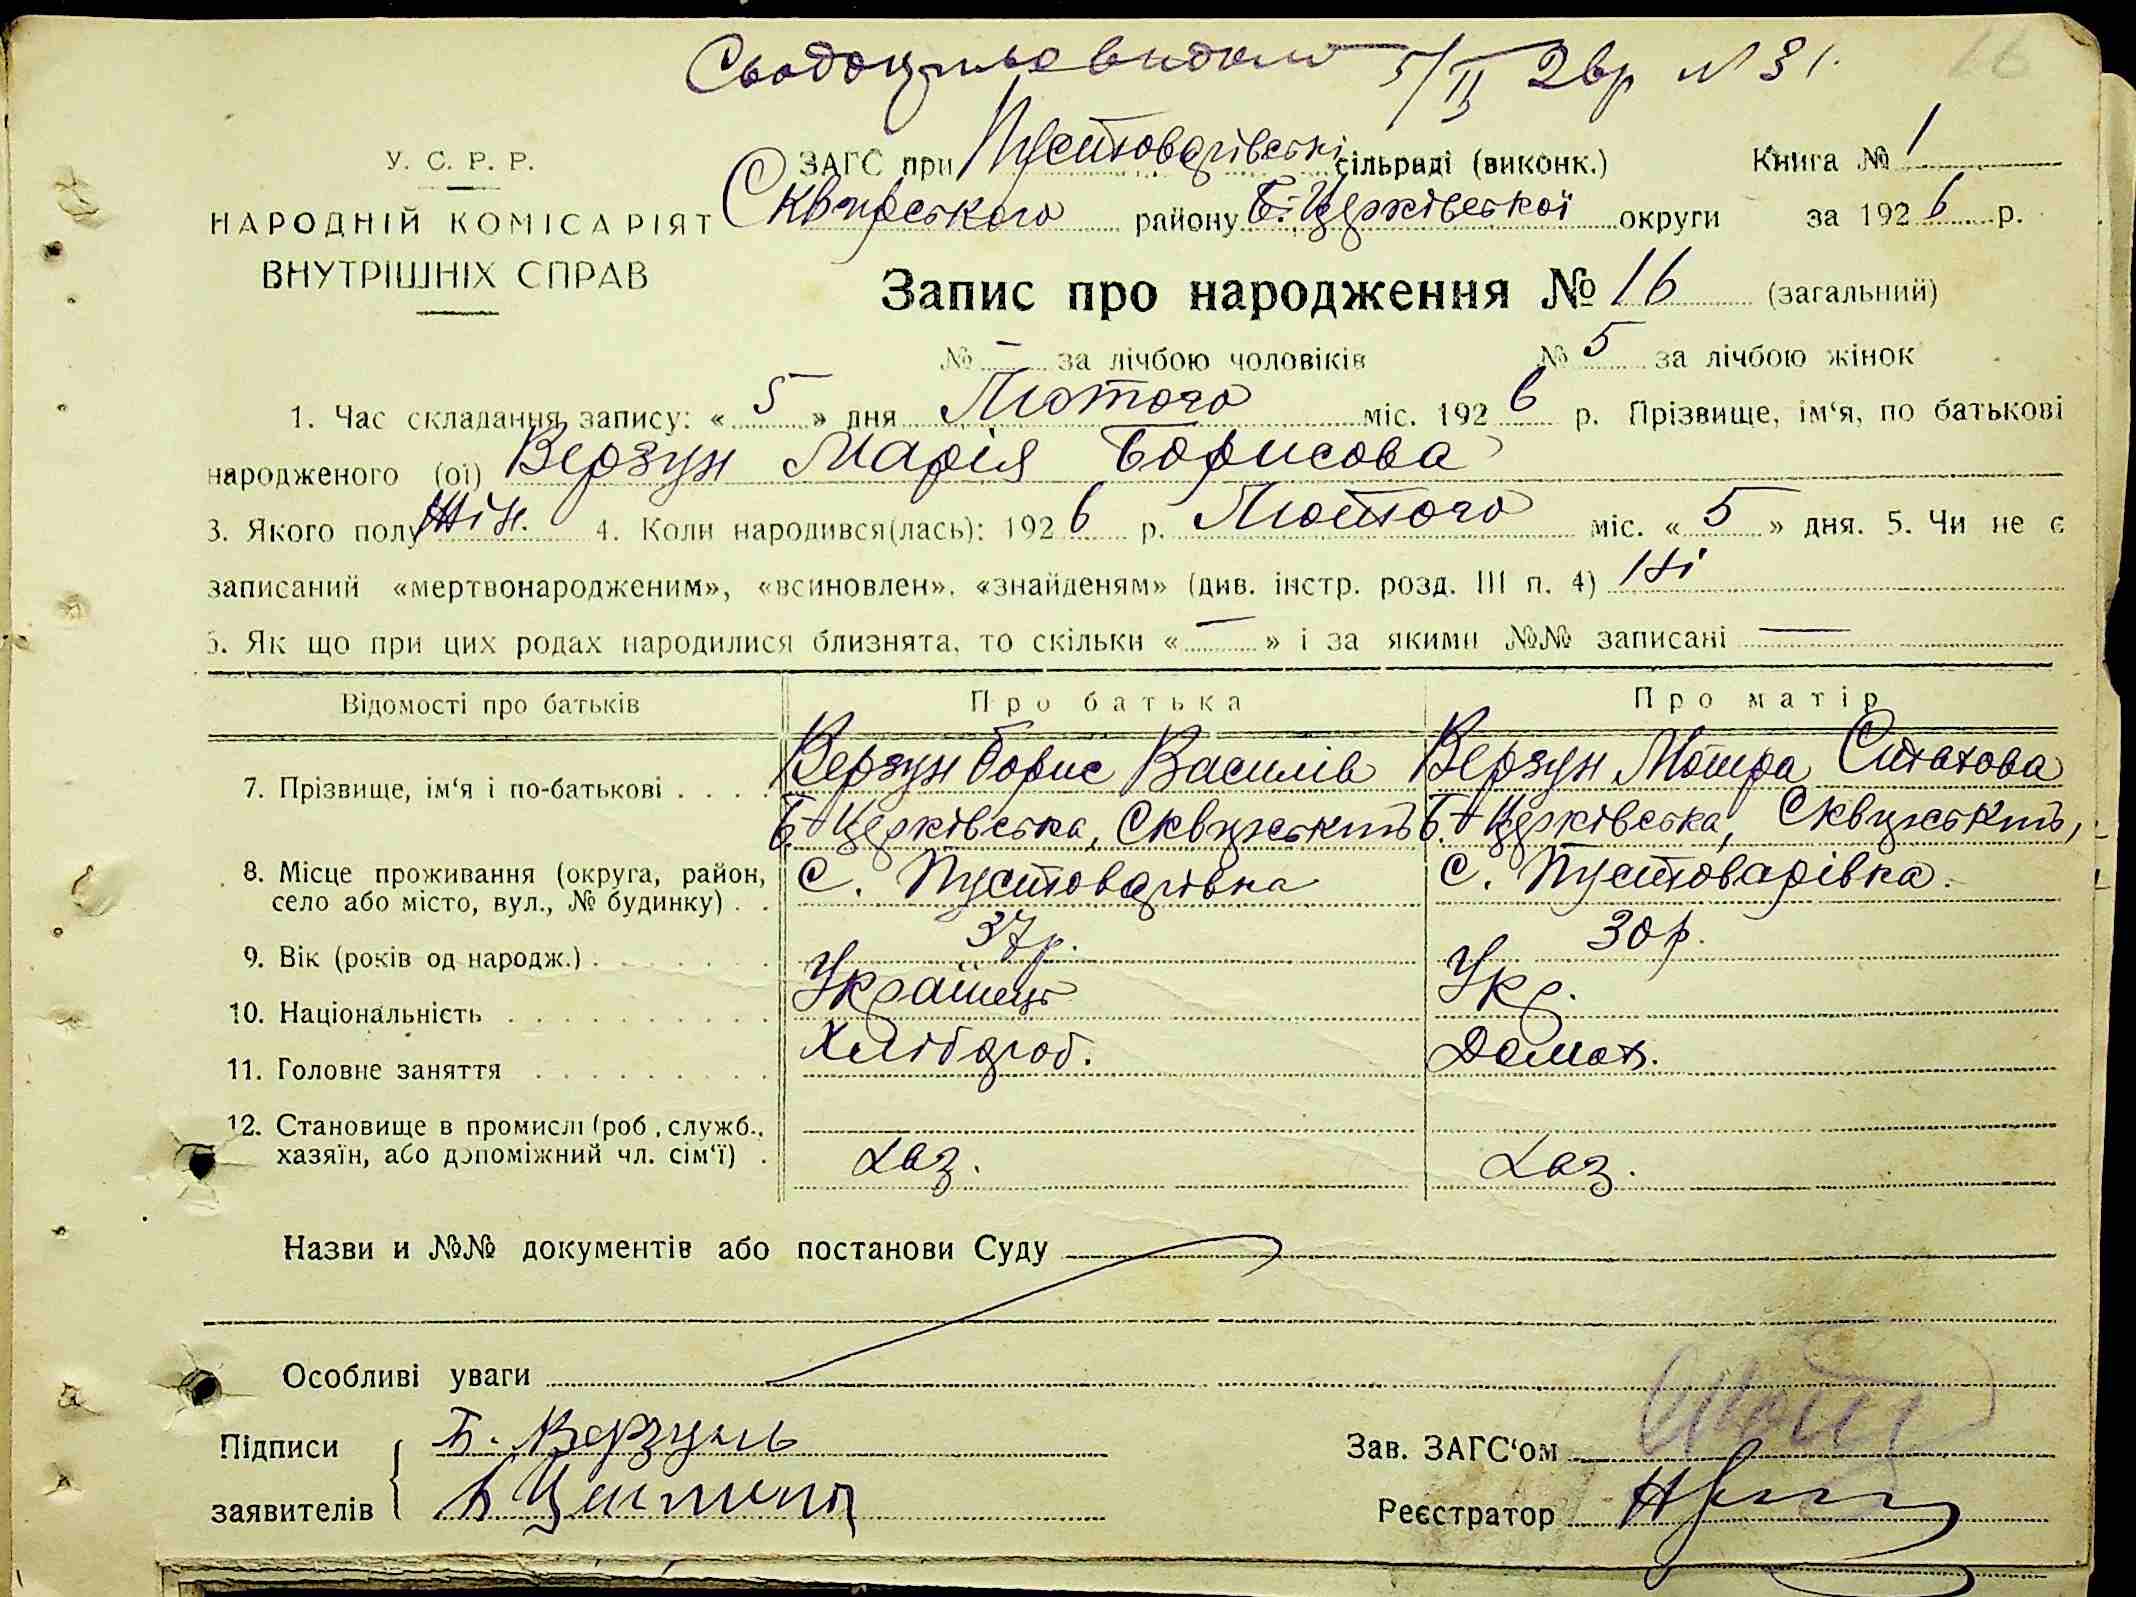 Свідоцтво видано 5/II 26р № 31.
16
У. С. Р. Р.
НАРОДНІЙ КОМІСАРІЯТ
ВНУТРІШНІХ СПРАВ
ЗАГС при Пустоварівські сільраді (виконк.) Книга № 1
Сквирського району Б. Церківської округи за 1926 р.
Запис про народження № 16 (загальний)
№ — за лічбою чоловіків № 5 за лічбою жінок
1. Час складання запису: « 5 » дня Лютого міс. 1926 р. Прізвище, ім‘я, по батькові
народженого (ої) Верзун Марія Борисова
3. Якого полу Жін. 4. Коли народився(лась): 1926 р. Лютого міс. « 5 » дня. 5. Чи не є
записаний «мертвонародженим», «всиновлен», «знайденям» (див. інстр. розд. III п. 4) Ні
6. Як що при цих родах народилися близнята, то скільки « — » і за якими №№ записані —
Відомості про батьків Про батька Про матір
7. Прізвище, ім‘я і по-батькові . . . . Верзун Борис Василів Верзун Мотра
Б. Церківська, Сквирський Б. Церківська, Сквирський,
8. Місце проживання (округа, район, с. Пустоварівка с. Пустоварівка.
село або місто, вул., № будинку) . .
9. Вік (років од народж.) . . . . . . . 37 р. 30 р.
10. Національність . . . . . . . . . . Українець Укр.
11. Головне заняття . . . . . . . . . Хлібороб. Домах.
12. Становище в промислі (роб., служб.,
хазяїн, або допоміжний чл. сім‘ї) . хаз. хаз.
Назви и №№ документів або постанови Суду
Особливі уваги
Підписи Б. Верзунь Зав. ЗАГС‘ом
заявителів Реєстратор